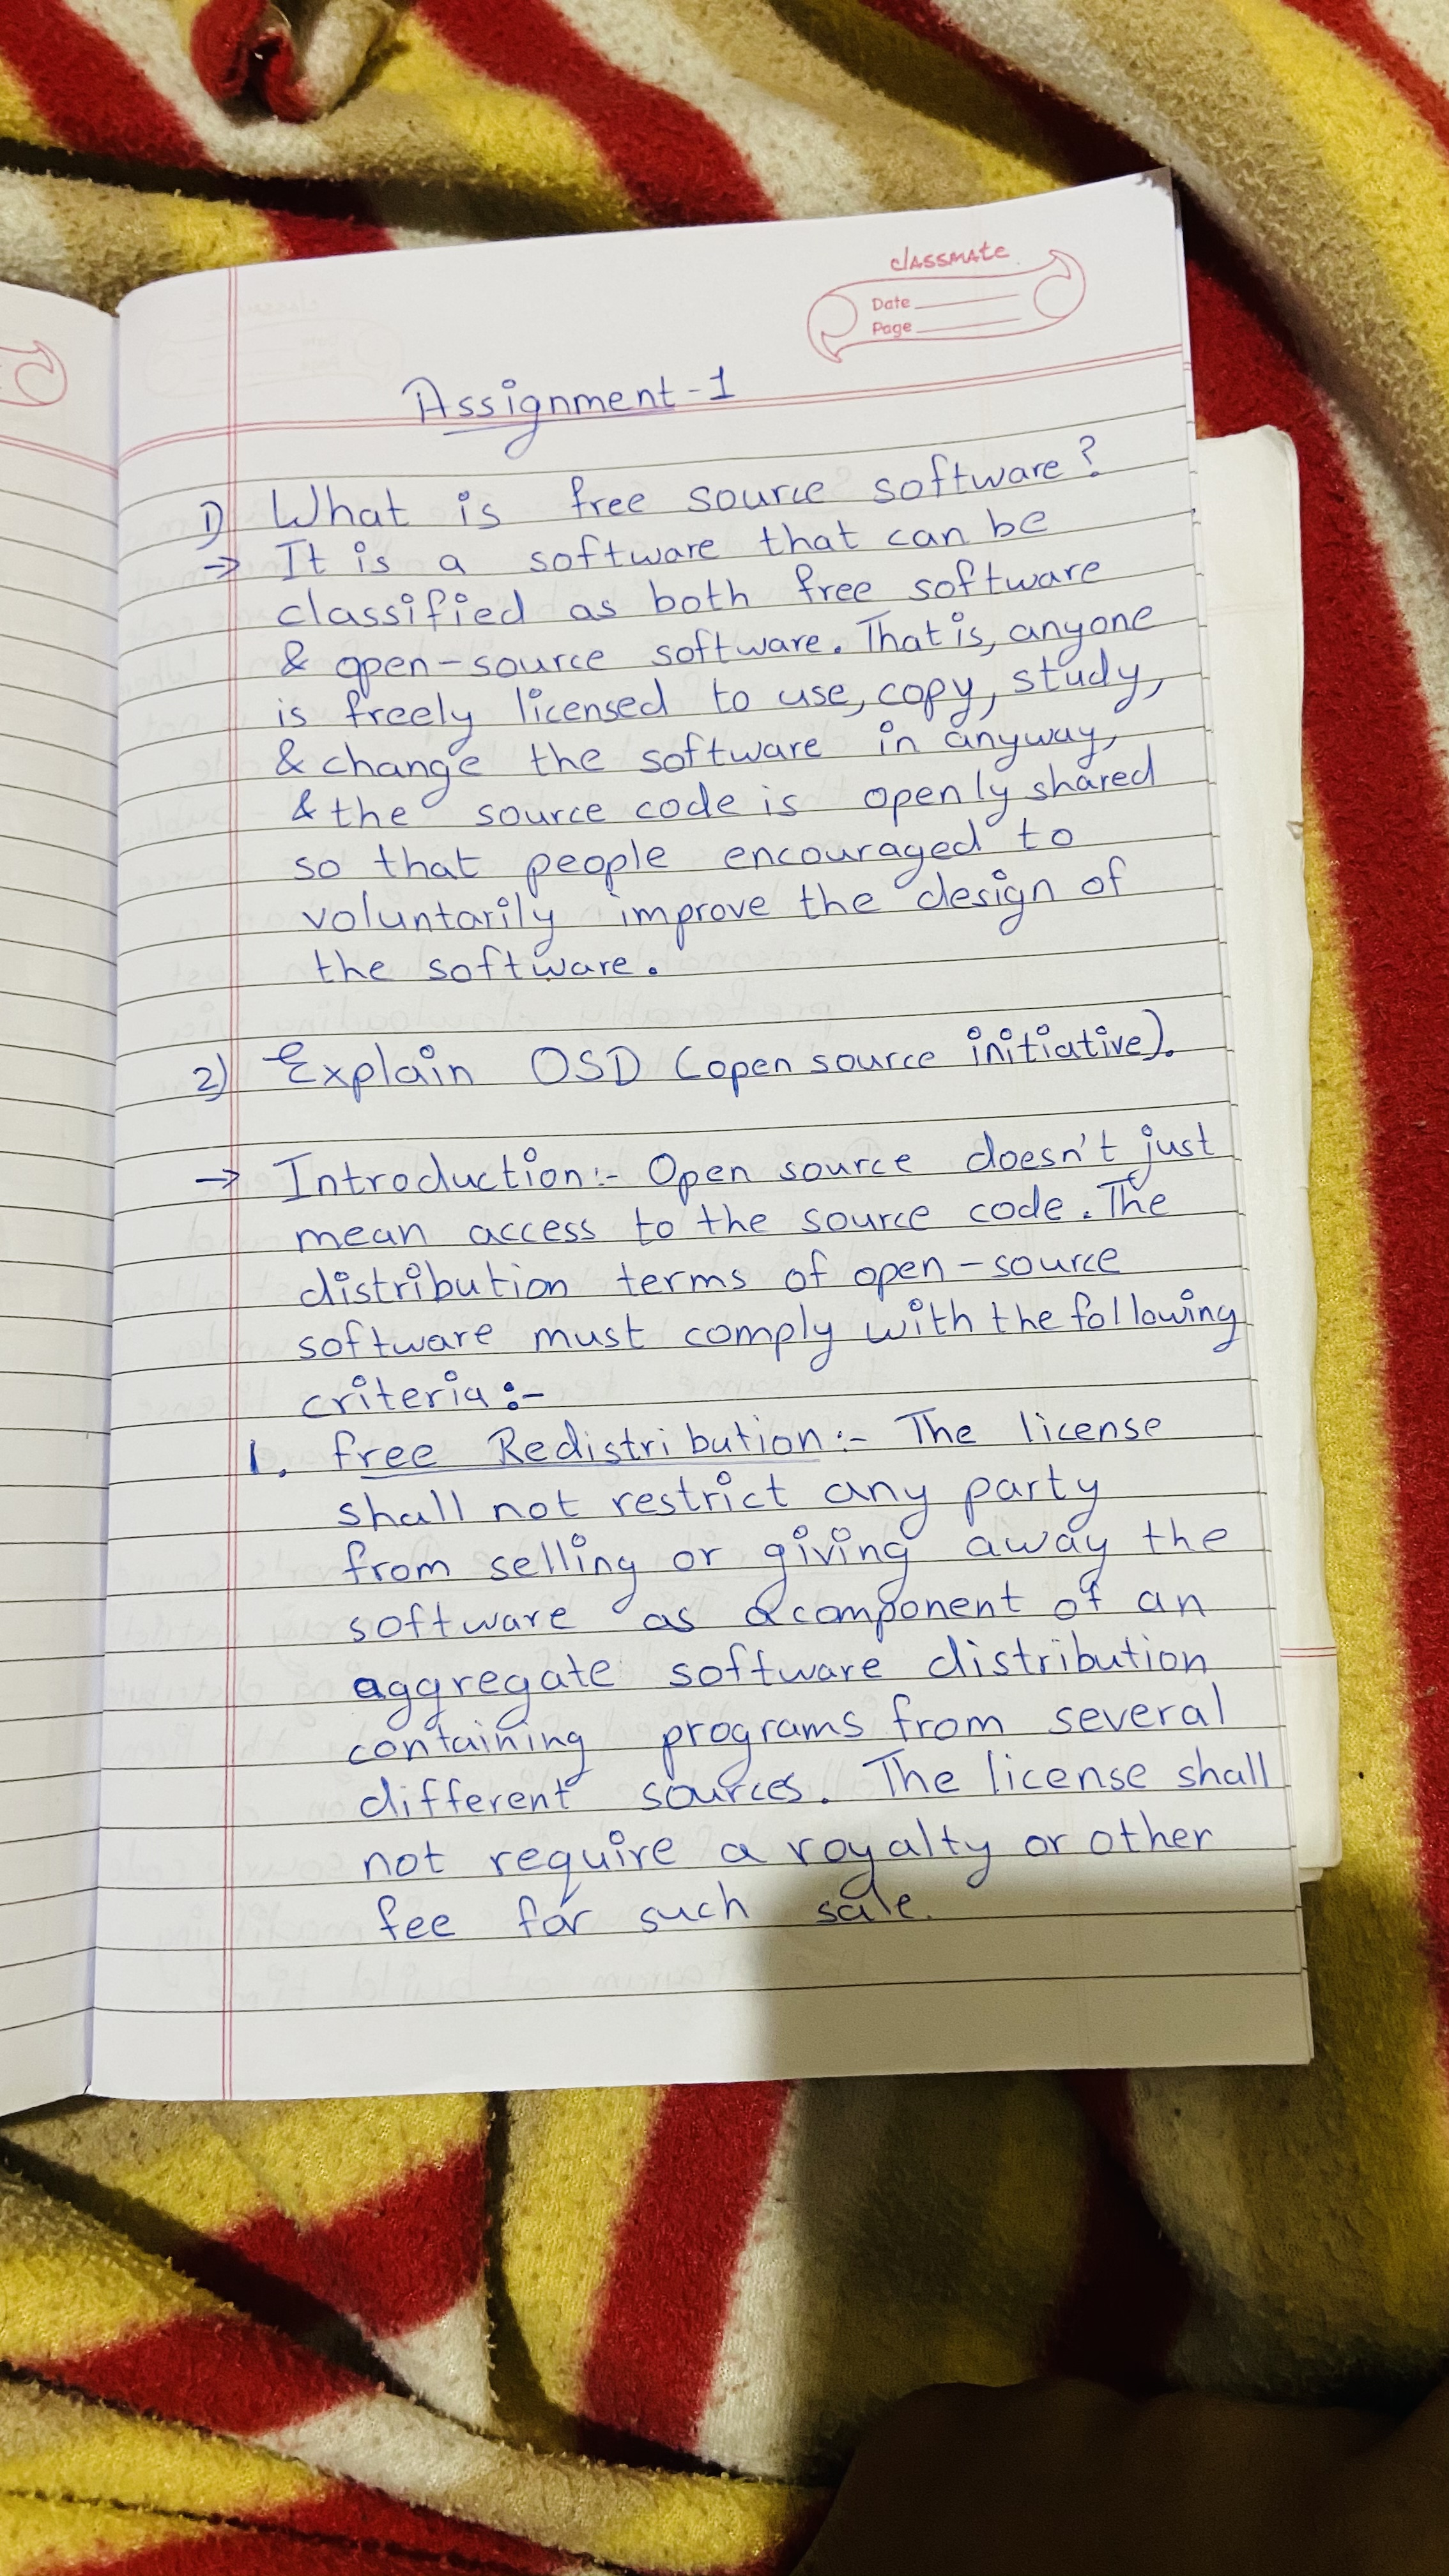 classmate
Date
Page
Assignment-1
1) What is free source software?
→ It is a software that can be
classified as both free software
& open-source software. That is, anyone
is freely licensed to use, copy, study,
& change the software in anyway,
& the source code is openly shared
so that people encouraged to
voluntarily improve the design of
the software.
2) Explain OSD (open source initiative).
→ Introduction:- Open source doesn't just
mean access to the source code. The
distribution terms of open-source
software must comply with the following
criteria:-
1. free Redistribution:- The license
shall not restrict any party
from selling or giving away the
software as a component of an
aggregate software distribution
containing programs from several
different sources. The license shall
not require a royalty or other
fee for such sale.